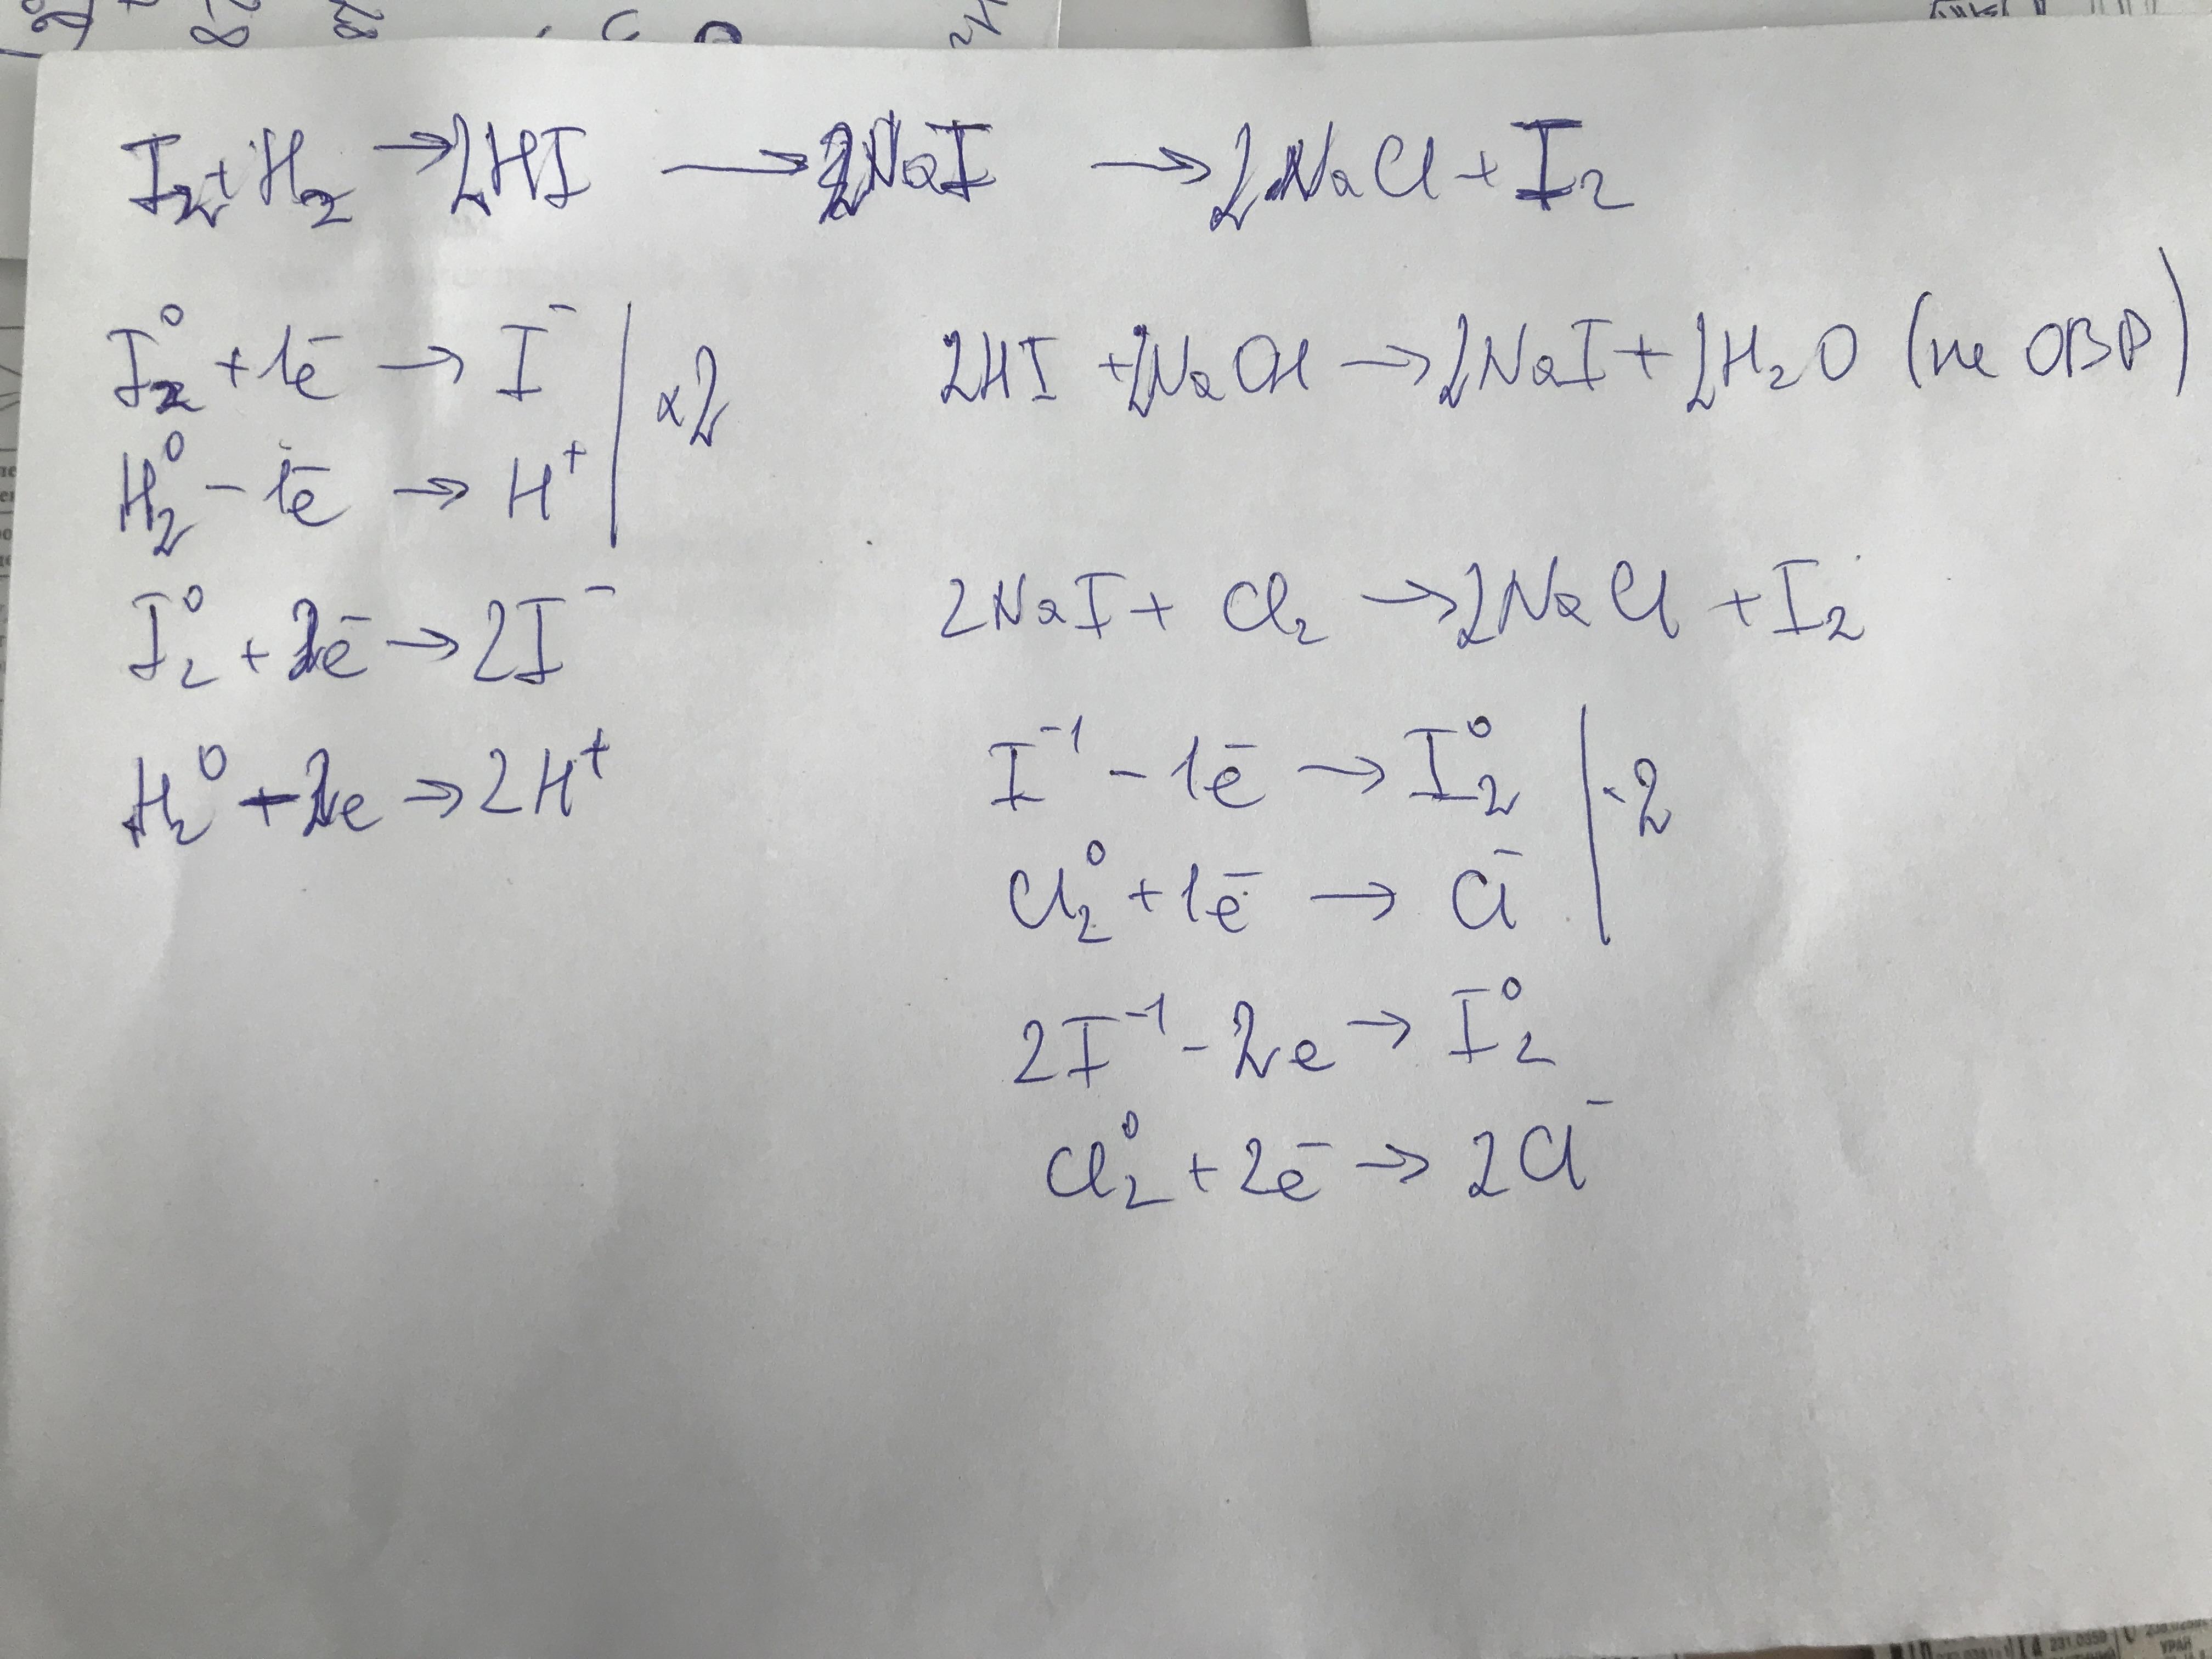 I₂ + H₂ → 2HI → 2NaI → 2NaCl + I₂
I₂⁰ + 1ē → I⁻ | ×2
H₂⁰ - 1ē → H⁺
I₂⁰ + 2ē → 2I⁻
H₂⁰ + 2e → 2H⁺
2HI + 2NaOH → 2NaI + 2H₂O (не ОВР)
2NaI + Cl₂ → 2NaCl + I₂
I⁻¹ - 1ē → I₂⁰ | ·2
Cl₂⁰ + 1ē → Cl⁻
2I⁻¹ - 2e → I₂⁰
Cl₂⁰ + 2ē → 2Cl⁻
231,0359
УРАН